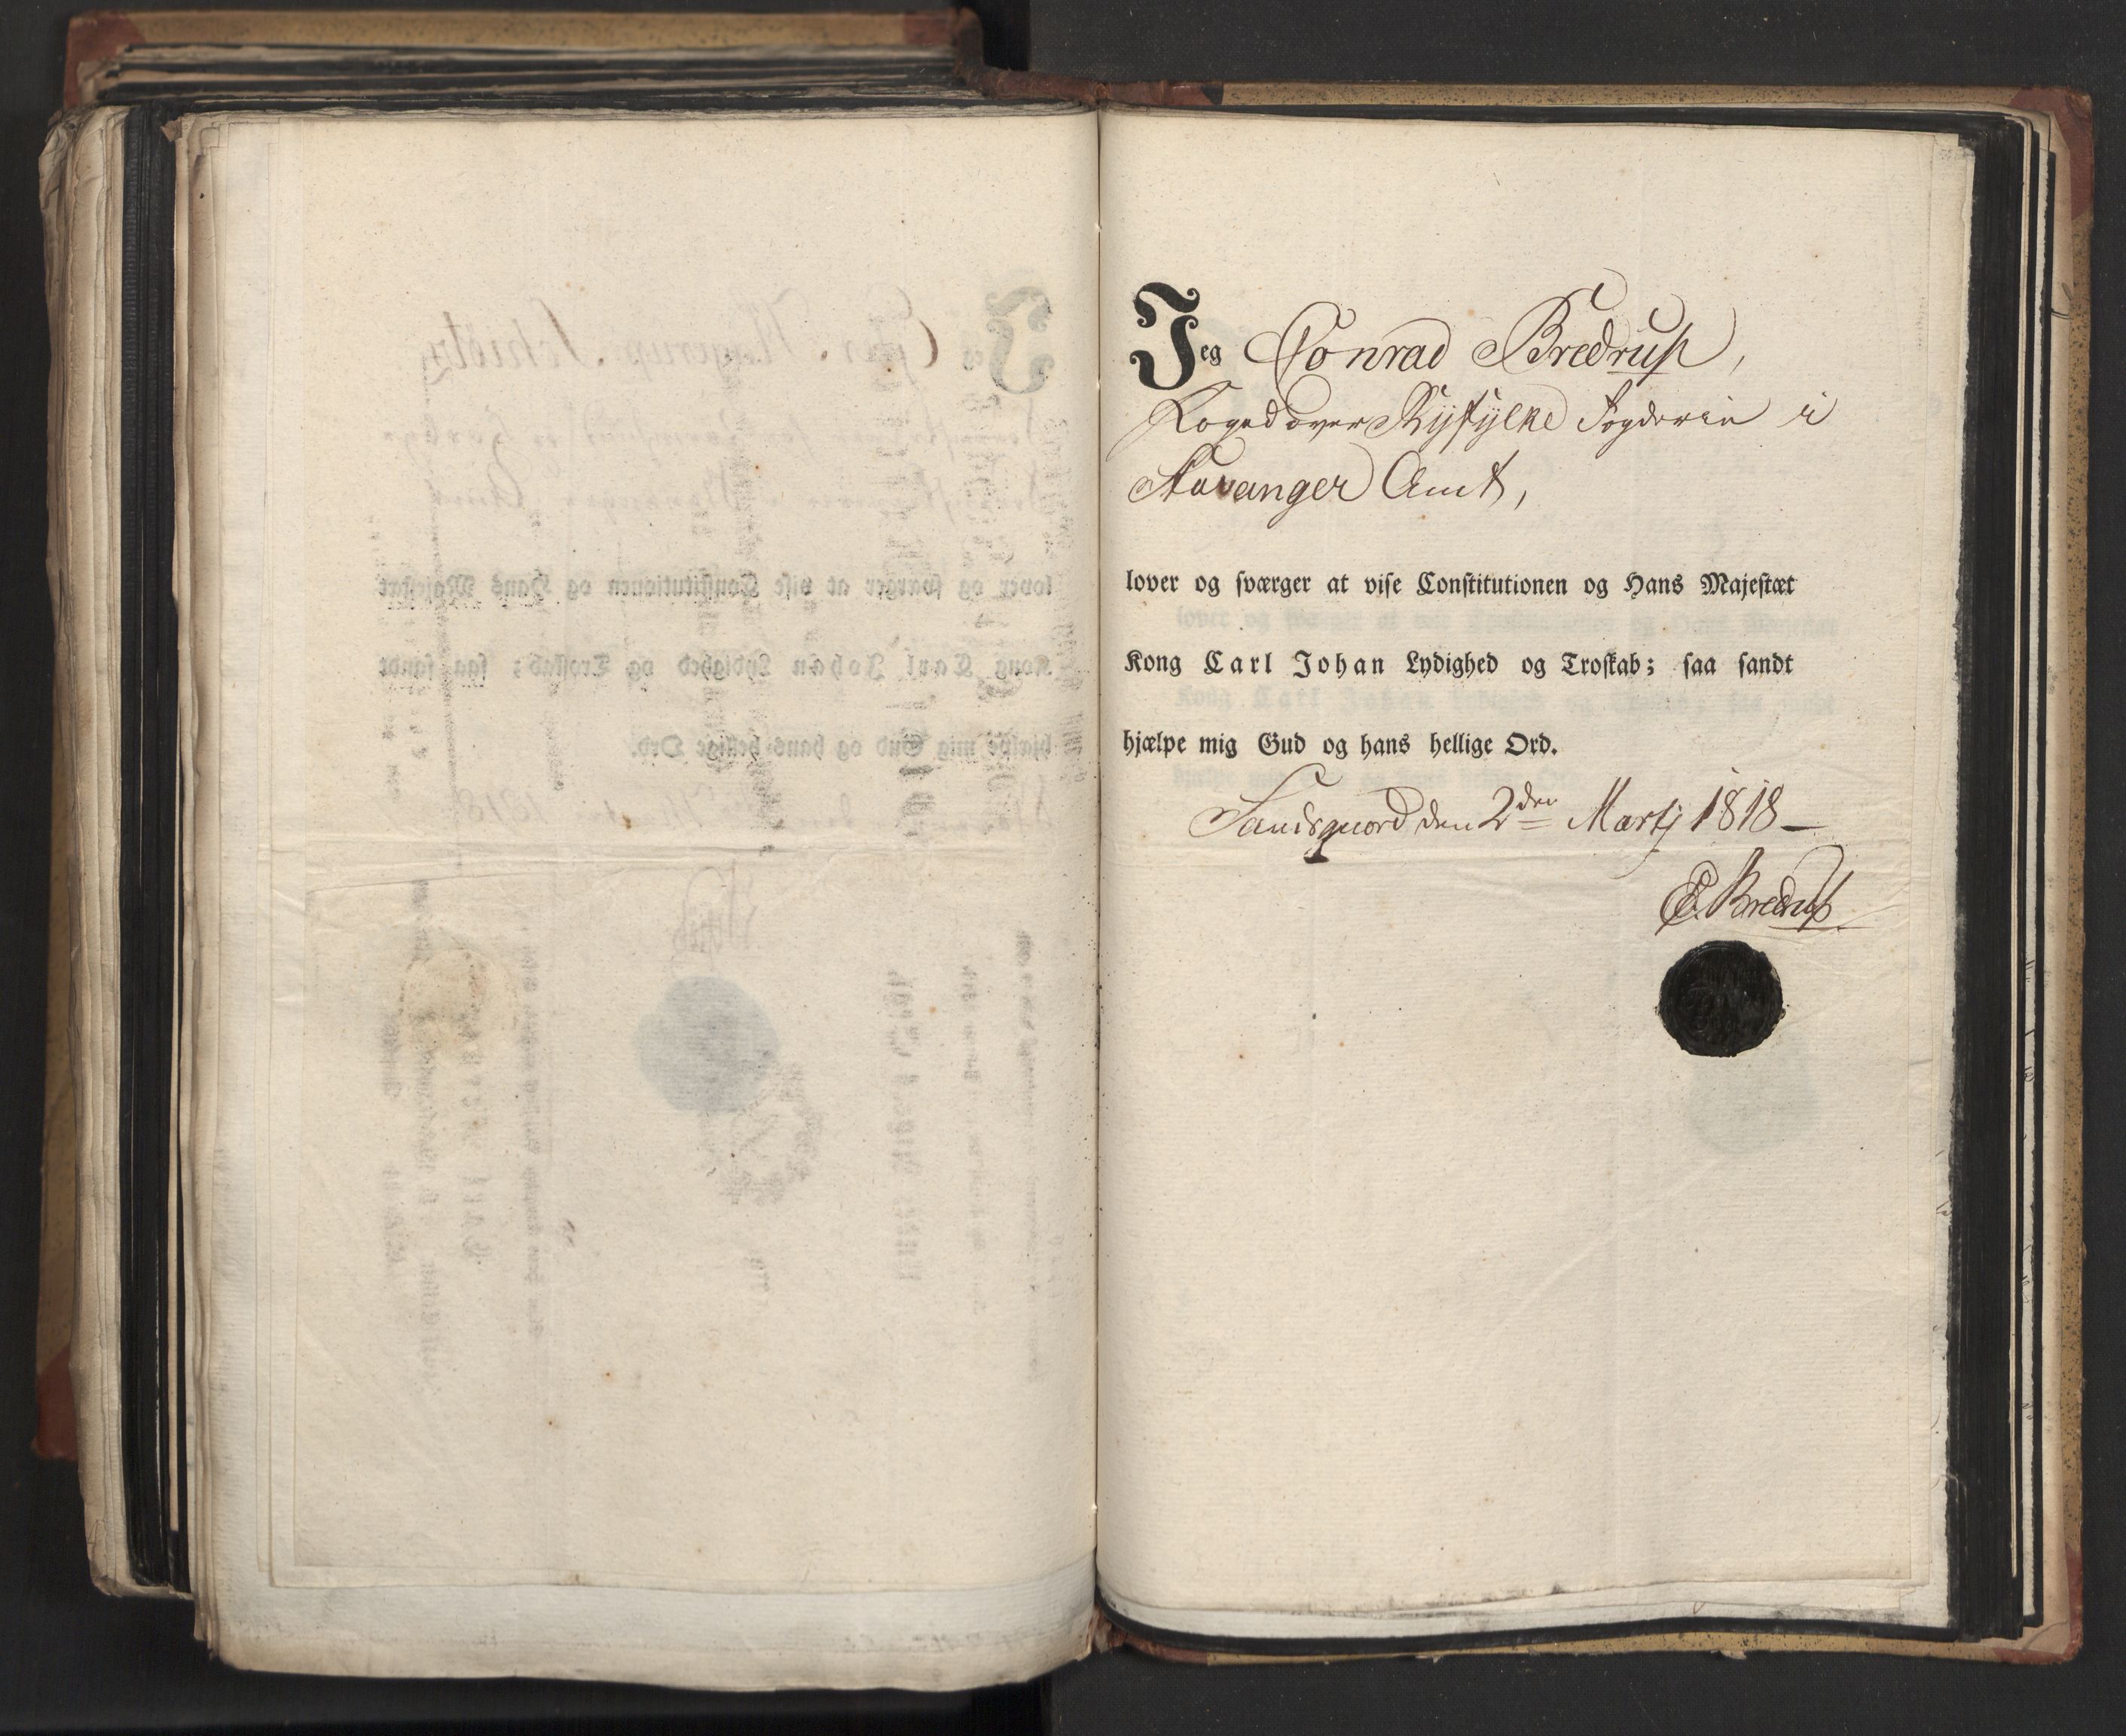 Jeg Conrad Bredrup,
Foged over Ryfylke Fogderie i
Stavanger Amt,
lover og sværger at vise Constitutionen og Hans Majestæt
Kong Carl Johan Lydighed og Troskab; saa sandt
hjælpe mig Gud og hans hellige Ord.
den 2den Martj 1818 –
C. Bredrup